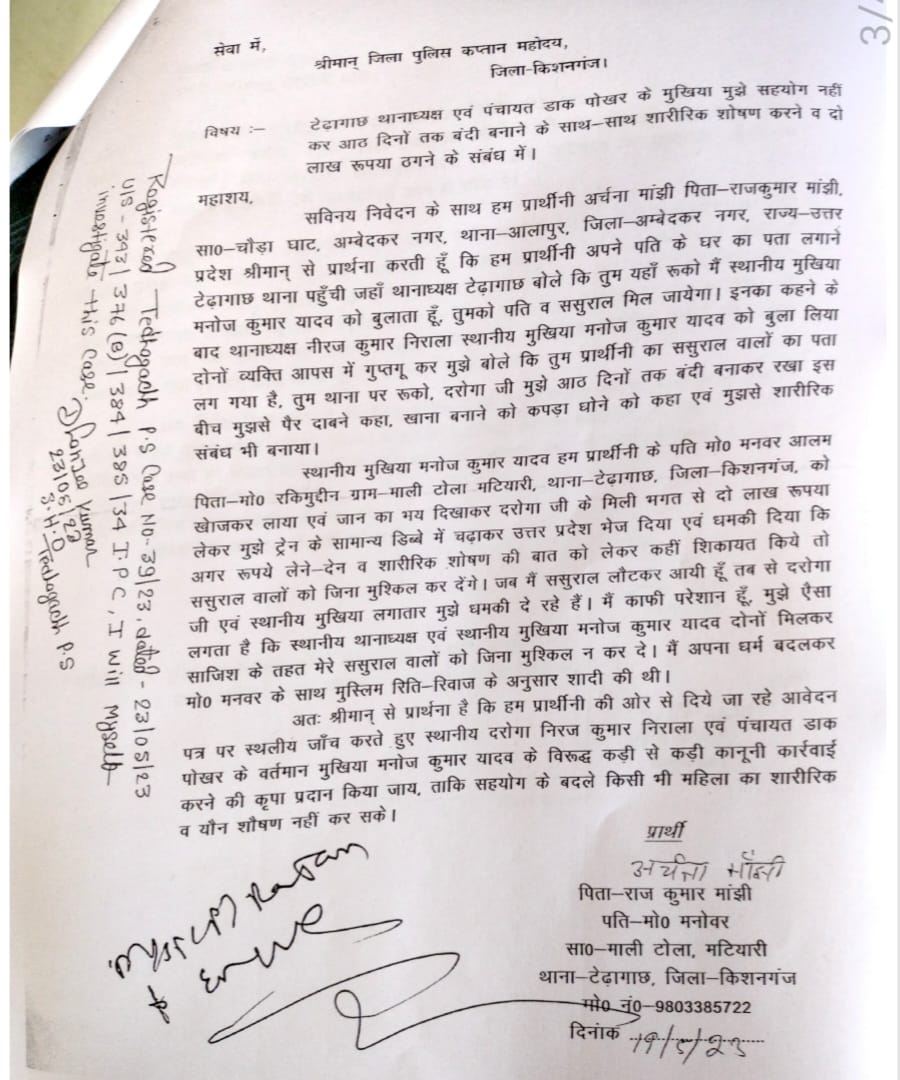 3/
सेवा में,
श्रीमान् जिला पुलिस कप्तान महोदय,
जिला-किशनगंज।
विषय :– टेढ़ागाछ थानाध्यक्ष एवं पंचायत डाक पोखर के मुखिया मुझे सहयोग नहीं
कर आठ दिनों तक बंदी बनाने के साथ–साथ शारीरिक शोषण करने व दो
लाख रूपया ठगने के संबंध में।
महाशय,
सविनय निवेदन के साथ हम प्रार्थीनी अर्चना मांझी पिता–राजकुमार मांझी,
सा0–चौड़ा घाट, अम्बेदकर नगर, थाना–आलापुर, जिला–अम्बेदकर नगर, राज्य–उत्तर
प्रदेश श्रीमान् से प्रार्थना करती हूँ कि हम प्रार्थीनी अपने पति के घर का पता लगाने
टेढ़ागाछ थाना पहुँची जहाँ थानाध्यक्ष टेढ़ागाछ बोले कि तुम यहाँ रूको मैं स्थानीय मुखिया
मनोज कुमार यादव को बुलाता हूँ, तुमको पति व ससुराल मिल जायेगा। इनका कहने के
बाद थानाध्यक्ष नीरज कुमार निराला स्थानीय मुखिया मनोज कुमार यादव को बुला लिया
दोनों व्यक्ति आपस में गुप्तगू कर मुझे बोले कि तुम प्रार्थीनी का ससुराल वालों का पता
लग गया है, तुम थाना पर रूको, दरोगा जी मुझे आठ दिनों तक बंदी बनाकर रखा इस
बीच मुझसे पैर दाबने कहा, खाना बनाने को कपड़ा धोने को कहा एवं मुझसे शारीरिक
संबंध भी बनाया।
स्थानीय मुखिया मनोज कुमार यादव हम प्रार्थीनी के पति मो0 मनवर आलम
पिता–मो0 रकिमुद्दीन ग्राम–माली टोला मटियारी, थाना–टेढ़ागाछ, जिला–किशनगंज, को
खोजकर लाया एवं जान का भय दिखाकर दरोगा जी के मिली भगत से दो लाख रूपया
लेकर मुझे ट्रेन के सामान्य डिब्बे में चढ़ाकर उत्तर प्रदेश भेज दिया एवं धमकी दिया कि
अगर रूपये लेने–देन व शारीरिक शोषण की बात को लेकर कहीं शिकायत किये तो
ससुराल वालों को जिना मुश्किल कर देंगे। जब मैं ससुराल लौटकर आयी हूँ तब से दरोगा
जी एवं स्थानीय मुखिया लगातार मुझे धमकी दे रहे हैं। मैं काफी परेशान हूँ, मुझे ऐसा
लगता है कि स्थानीय थानाध्यक्ष एवं स्थानीय मुखिया मनोज कुमार यादव दोनों मिलकर
साजिश के तहत मेरे ससुराल वालों को जिना मुश्किल न कर दे। मैं अपना धर्म बदलकर
मो0 मनवर के साथ मुस्लिम रिति–रिवाज के अनुसार शादी की थी।
अतः श्रीमान् से प्रार्थना है कि हम प्रार्थीनी की ओर से दिये जा रहे आवेदन
पत्र पर स्थलीय जाँच करते हुए स्थानीय दरोगा निरज कुमार निराला एवं पंचायत डाक
पोखर के वर्तमान मुखिया मनोज कुमार यादव के विरूद्ध कड़ी से कड़ी कानूनी कार्रवाई
करने की कृपा प्रदान किया जाय, ताकि सहयोग के बदले किसी भी महिला का शारीरिक
व यौन शौषण नहीं कर सके।
प्रार्थी
अर्चना माँझी
पिता–राज कुमार मांझी
पति–मो0 मनोवर
सा0–माली टोला, मटियारी
थाना–टेढ़ागाछ, जिला–किशनगंज
मो0 नं0–9803385722
दिनांक 19/5/23
Registered Tedhagachh P.S Case No- 39/23, dated - 23/05/23
U/S - 343/ 376(B)/ 384/ 385/34 I.P.C, I will Myself
investigate this case.
Kumar
23/05/23
S.H.O Tedhagachh P.S